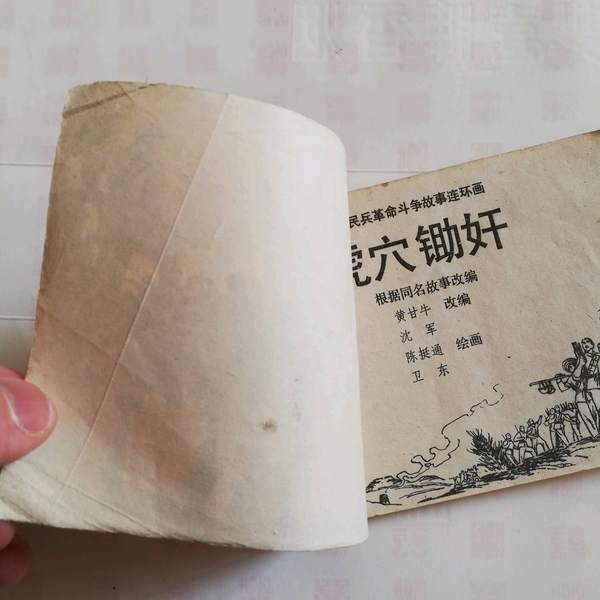 民兵革命斗争故事连环画
虎穴锄奸
根据同名故事改编
黄甘牛 改编
沈军
陈挺通 绘画
卫东